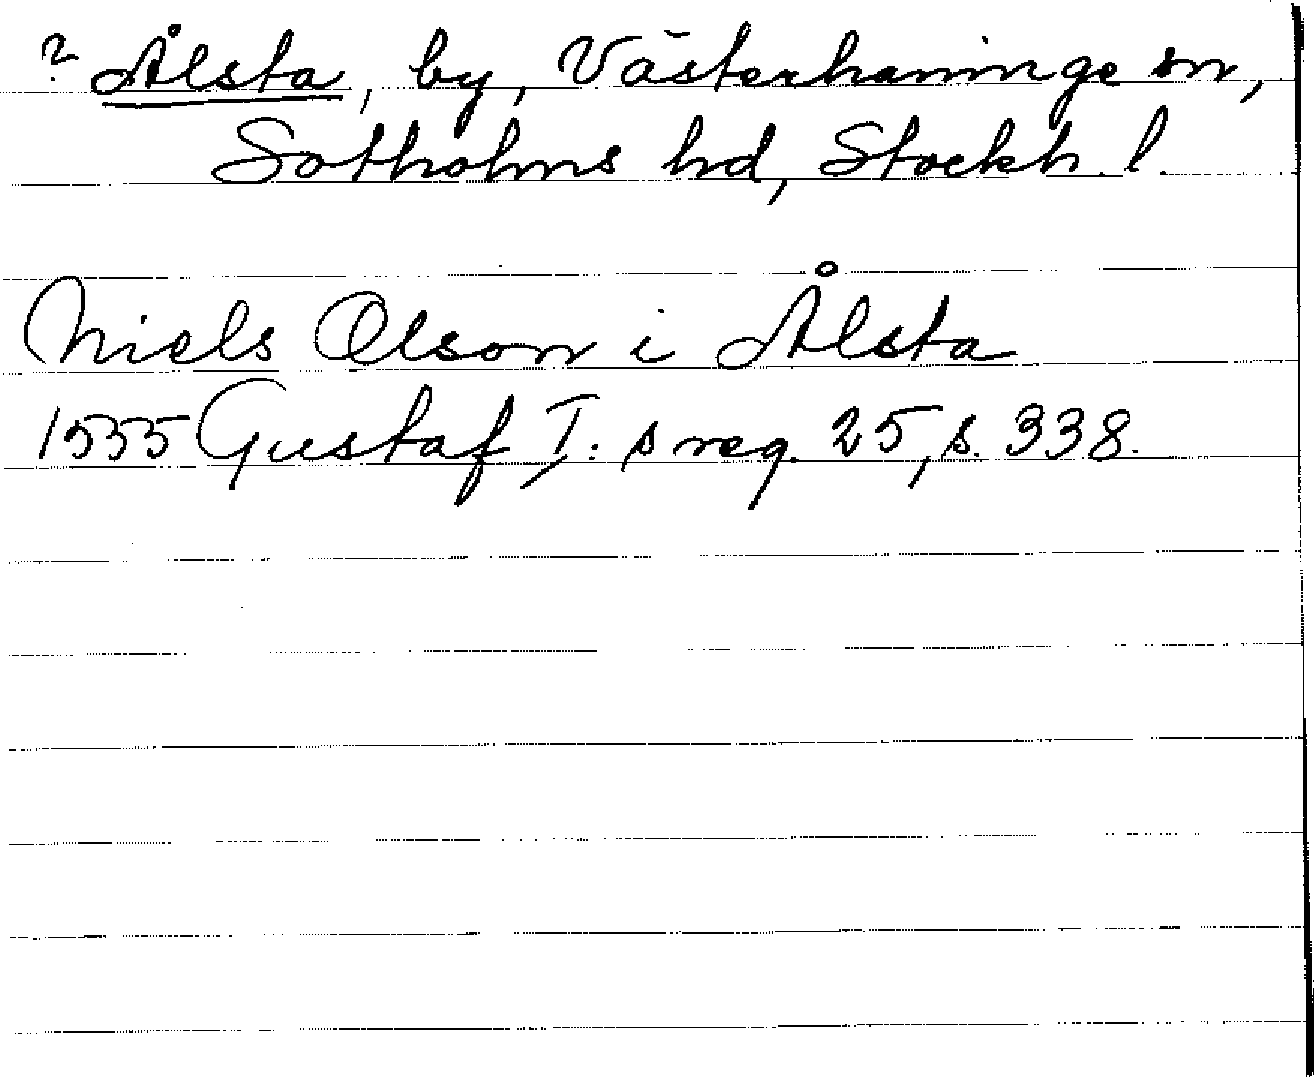 ? Ålsta, by, Västerhaninge sn,
Sotholms hd, Stockh. l.
Niels Olson i Ålsta
1555 Gustaf I:s reg. 25, s. 338.